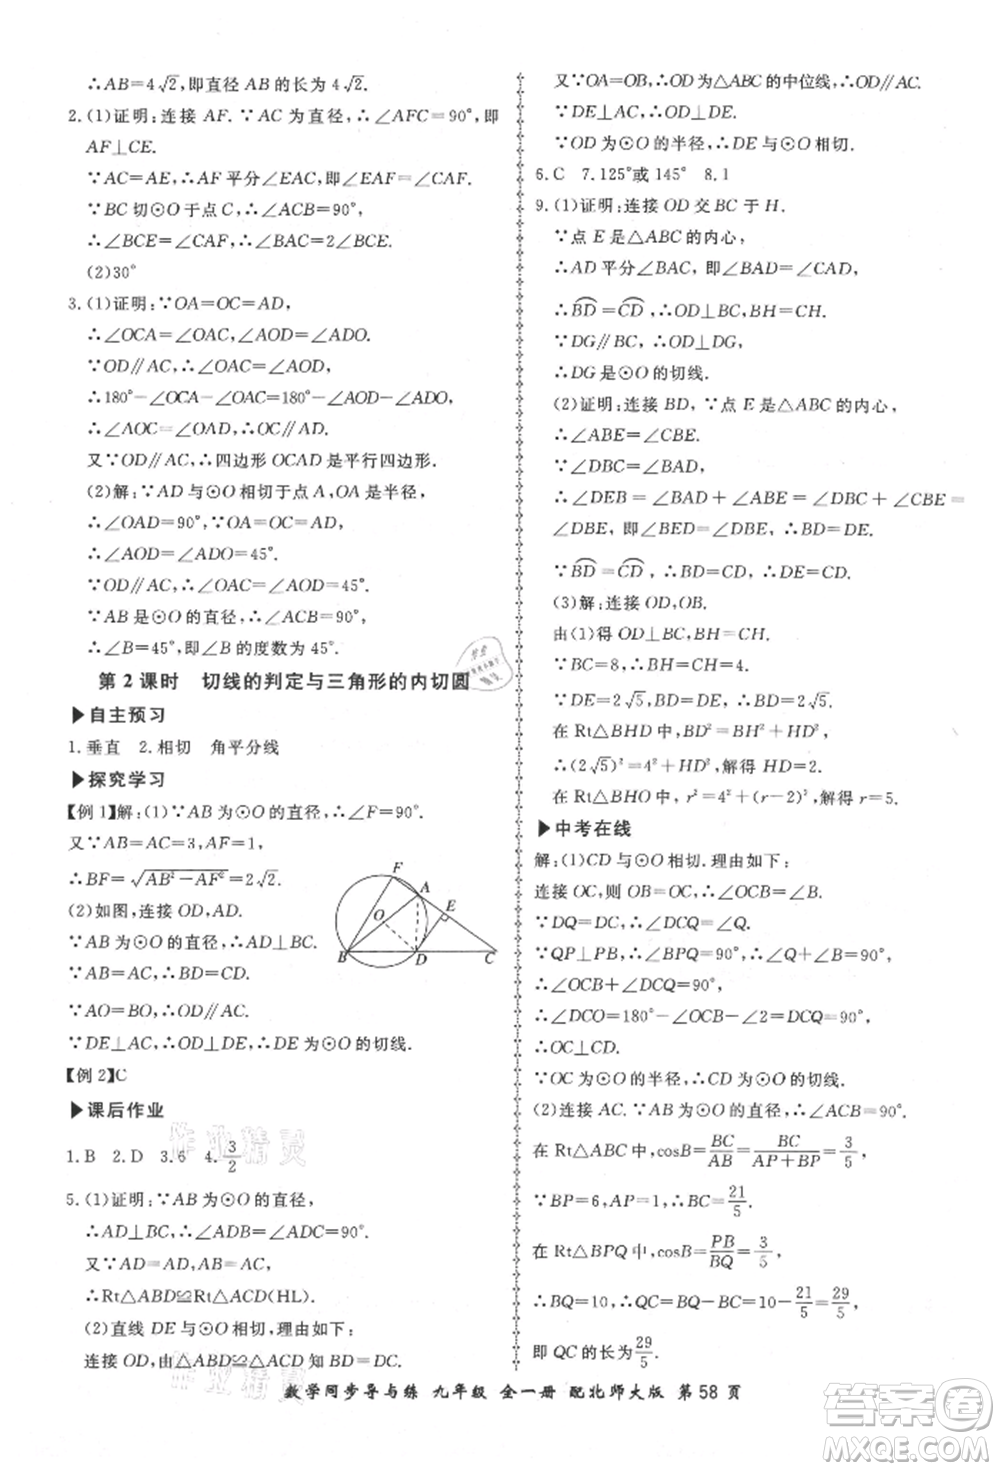 ∴AB=4√2,即直径 AB 的长为 4√2.
2.(1)证明:连接 AF.∵AC 为直径,∴∠AFC=90°,即
AF⊥CE.
∵AC=AE,∴AF 平分∠EAC,即∠EAF=∠CAF.
∵BC 切⊙O 于点 C,∴∠ACB=90°,
∴∠BCE=∠CAF,∴∠BAC=2∠BCE.
(2)30°
3.(1)证明:∵OA=OC=AD,
∴∠OCA=∠OAC,∠AOD=∠ADO.
∵OD∥AC,∴∠OAC=∠AOD,
∴180°-∠OCA-∠OAC=180°-∠AOD-∠ADO,
∴∠AOC=∠OAD,∴OC∥AD.
又∵OD∥AC,∴四边形 OCAD 是平行四边形.
(2)解:∵AD 与⊙O 相切于点A,OA 是半径,
∴∠OAD=90°,
∴∠AOD=∠ADO=45°.
∵OD∥AC,∴∠OAC=∠AOD=45°.
∵AB 是⊙O 的直径,∴∠ACB=90°,
∴∠B=45°,即∠B 的度数为 45°.
第 2 课时 切线的判定与三角形的内切圆
▶自主预习
1.垂直 2.相切 角平分线
▶探究学习
【例 1】解:(1)∵AB 为⊙O 的直径,∴∠F=90°.
又∵AB=AC=3,AF=1,
∴BF=√AB²-AF²=2√2.
(2)如图,连接 OD,AD.
∵AB 为⊙O 的直径,∴AD⊥BC.
∵AB=AC,∴BD=CD.
∵AO=BO,∴OD∥AC.
∵DE⊥AC,∴OD⊥DE,∴DE 为⊙O 的切线.
F
A
E
O
B
D
C
【例 2】C
▶课后作业
1.B 2.D 3.6 4.3/2
5.(1)证明:∵AB 为⊙O 的直径,
∴AD⊥BC,∴∠ADB=∠ADC=90°.
又∵AD=AD,AB=AC,
∴Rt△ABD≌Rt△ACD(HL).
(2)直线 DE 与⊙O 相切.理由如下:
连接 OD,由△ABD≌△ACD 知 BD=DC.
又∵OA=OB,∴OD 为△ABC 的中位线,∴OD∥AC.
∵DE⊥AC,∴OD⊥DE.
∵OD 为⊙O 的半径,∴DE 与⊙O 相切.
6.C 7.125°或 145° 8.1
9.(1)证明:连接 OD 交 BC 于 H.
∵点 E 是△ABC 的内心,
∴AD 平分∠BAC,即∠BAD=∠CAD,
∴BD=CD,∴OD⊥BC,BH=CH.
∵DG∥BC,∴OD⊥DG,
∴DG 是⊙O 的切线.
(2)证明:连接 BD,∵点 E 是△ABC 的内心,
∴∠ABE=∠CBE.
∴∠DEB=∠BAD+∠ABE=∠DBC+∠CBE=
∠DBE,即∠BED=∠DBE,∴BD=DE.
∵BD=CD,∴BD=CD,∴DE=CD.
(3)解:连接 OD,OB.
由(1)得 OD⊥BC,BH=CH.
∵BC=8,∴BH=CH=4.
∵DE=2√5,BD=DE,∴BD=2√5.
在 Rt△BHD 中,BD²=BH²+HD²,
∴(2√5)²=4²+HD²,解得 HD=2.
在 Rt△BHO 中,r²=4²+(r-2)²,解得 r=5.
▶中考在线
解:(1)CD 与⊙O 相切.理由如下:
连接 OC,则 OB=OC,∴∠OCB=∠B.
∵DQ=DC,∴∠Q=∠DCQ.
∵QP⊥PB,∴∠QPB=90°,∴∠Q+∠B=90°,
∴∠OCB+∠DCQ=90°,
∴∠DCO=180°-∠OCB-∠2=90°,
∴OC⊥CD.
∵OC 为⊙O 的半径,∴CD 为⊙O 的切线.
(2)连接 AC,∵AB 是⊙O 的直径,∴∠ACB=90°.
在 Rt△ABC 中,cosB=BC/AB=BC/(AP+BP)=3/5.
∵BP=6,AP=1,∴BC=21/5.
在 Rt△BPQ 中,cosB=PB/BQ=3/5,
∴BQ=10,∴QC=BQ-BC=10-21/5=29/5,
即 QC 的长为29/5.
数学同步导与练 九年级 全一册 配北师大版 第 58 页
作业精灵
作业精灵
答案圈
MXQE.COM